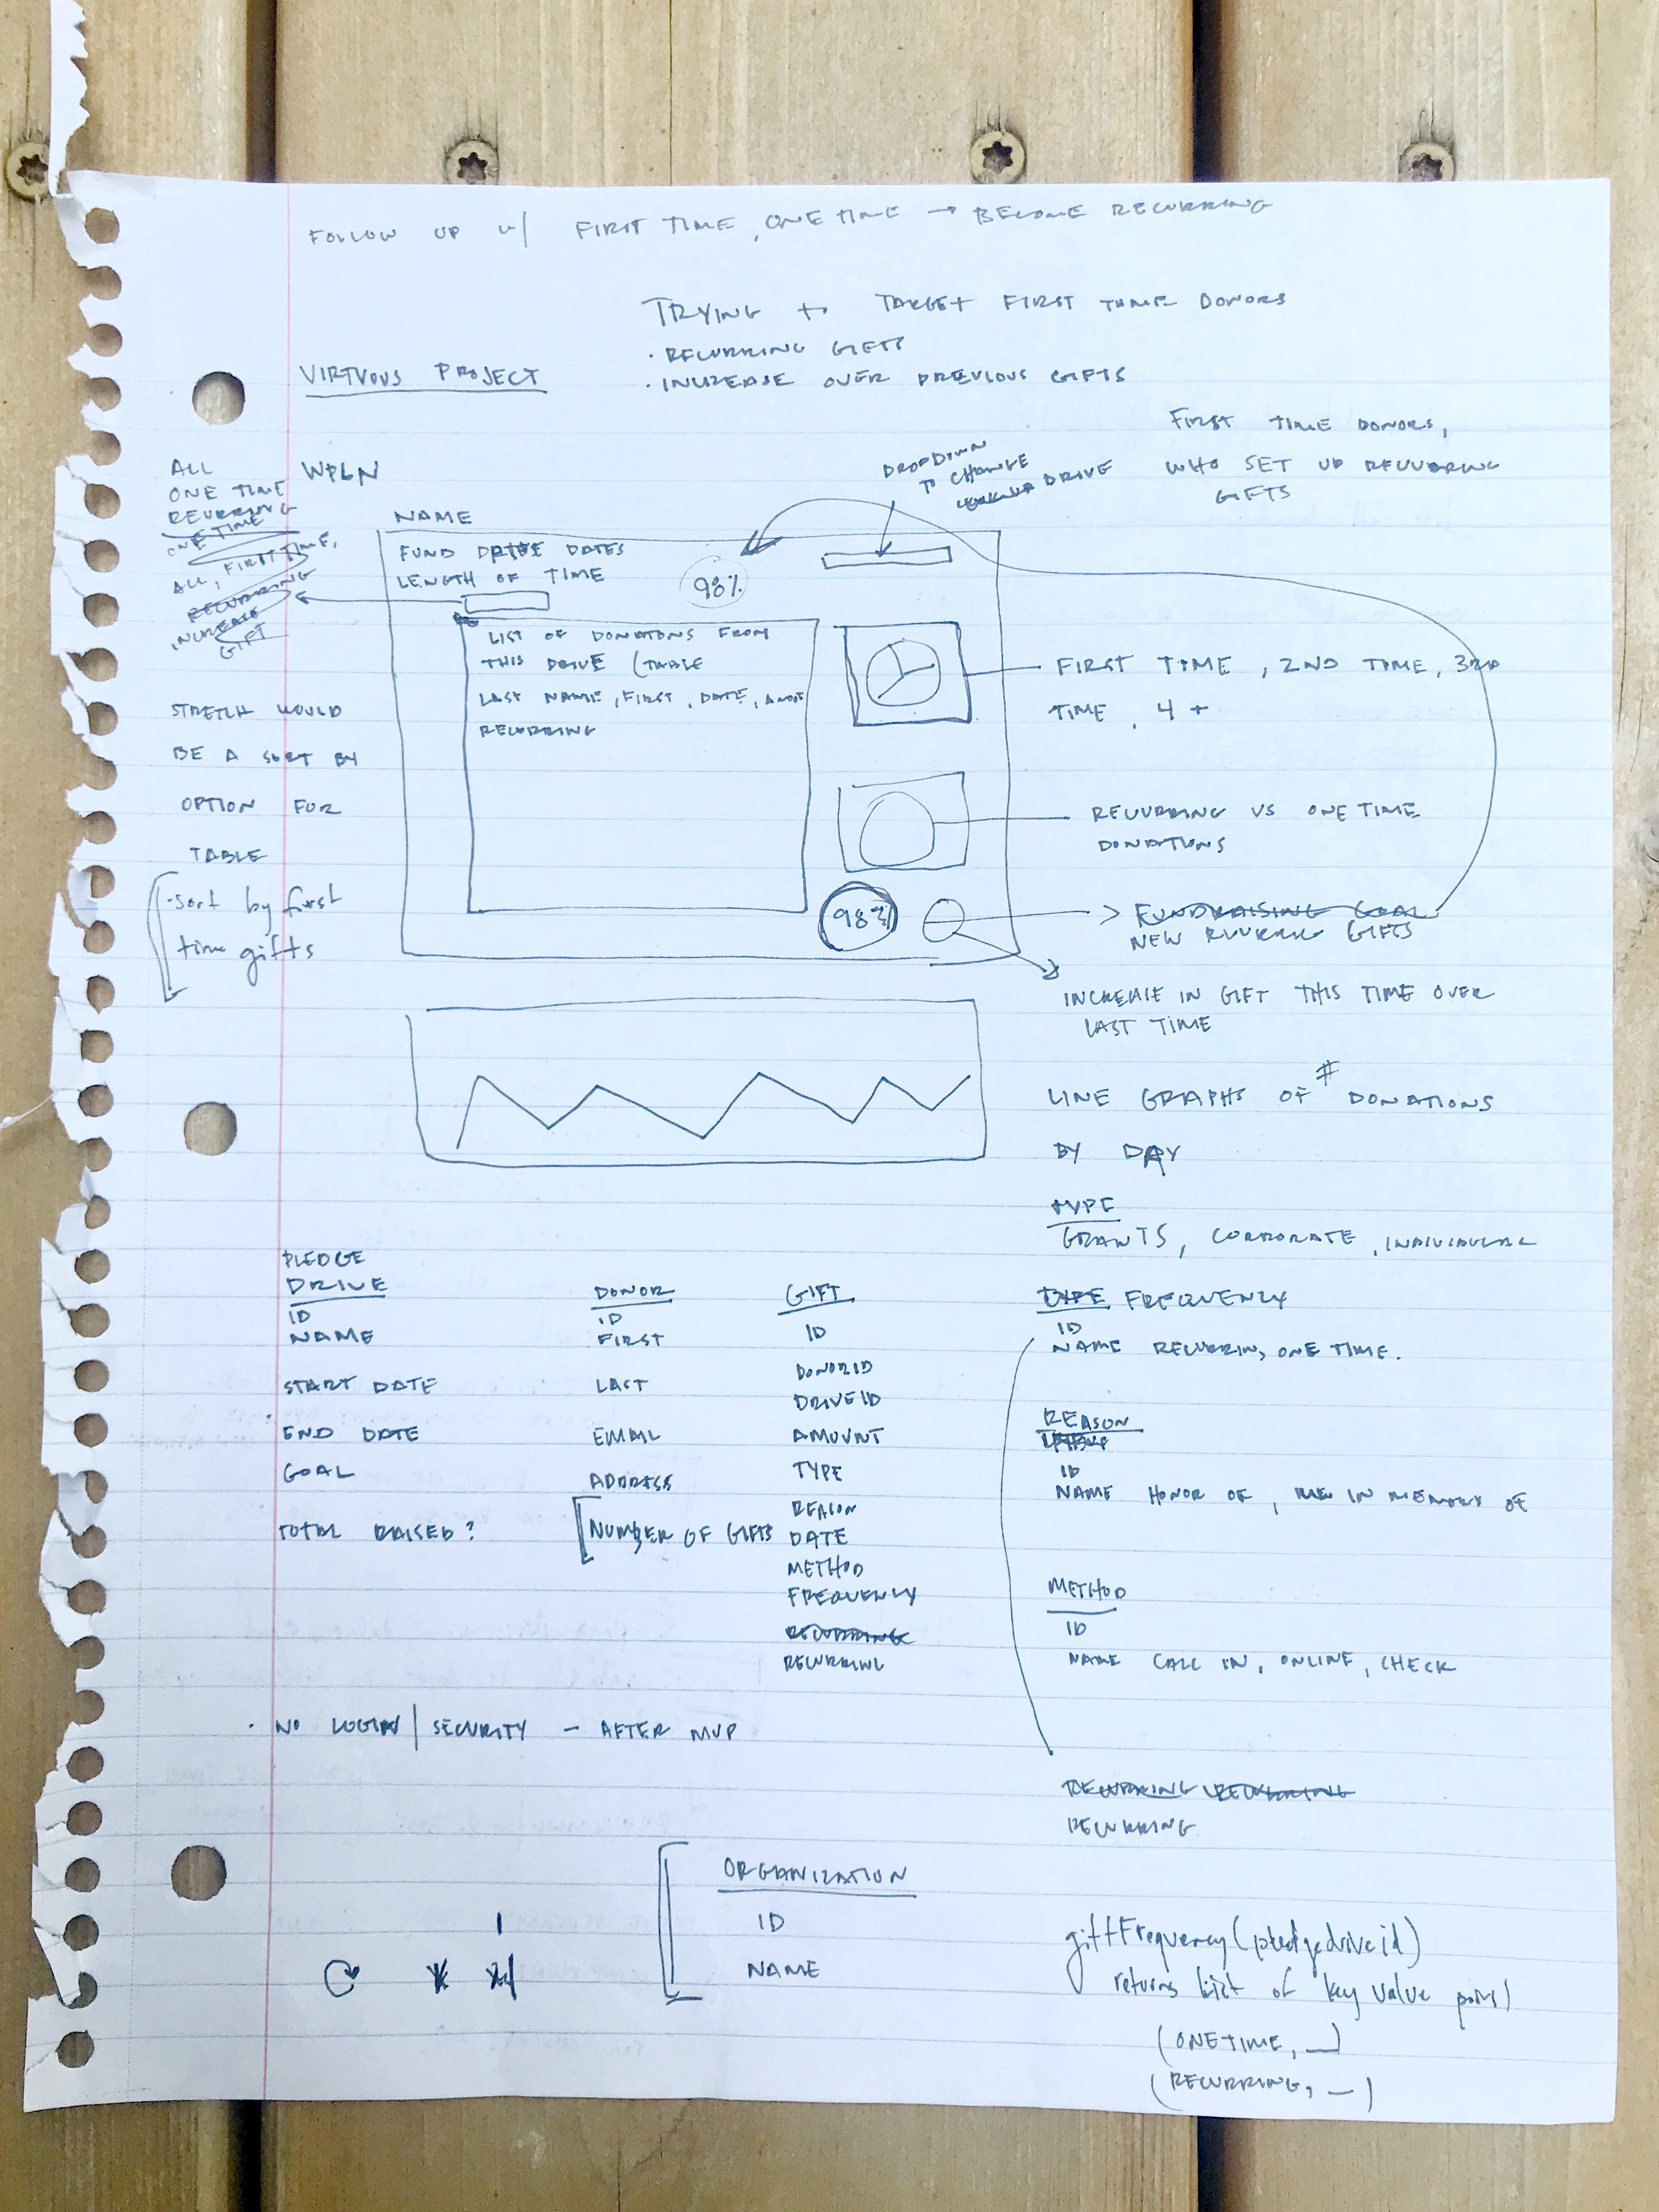 FOLLOW UP W/ FIRST TIME, ONE TIME → BECOME RECURRING
TRYING to TARGET FIRST TIME DONORS
· RECURRING GIFTS
· INCREASE OVER PREVIOUS GIFTS
VIRTUOUS PROJECT
FIRST TIME DONORS,
WHO SET UP RECURRING
GIFTS
DROPDOWN
TO CHANGE
DRIVE
ALL
ONE TIME
RECURRING
ONE TIME
ONE TIME
ALL, FIRST TIME,
RECURRING
INCREASE
GIFT
WPLN
NAME
FUND DRIVE DATES
LENGTH OF TIME
98%
LIST OF DONATIONS FROM
THIS DRIVE (TABLE
LAST NAME, FIRST, DATE,
RECURRING
FIRST TIME, 2ND TIME, 3RD
TIME, 4+
STRETCH WOULD
BE A SORT BY
OPTION FOR
TABLE
·sort by first
time gifts
RECURRING VS ONE TIME
DONATIONS
98%
> FUNDRAISING GOAL
NEW RECURRING GIFTS
INCREASE IN GIFT THIS TIME OVER
LAST TIME
LINE GRAPHS OF # DONATIONS
BY DAY
TYPE
GRANTS, CORPORATE, INDIVIDUAL
PLEDGE
DRIVE
ID
NAME
START DATE
END DATE
GOAL
TOTAL RAISED?
DONOR
ID
FIRST
LAST
EMAIL
ADDRESS
NUMBER OF GIFTS
GIFT
ID
DONORID
DRIVEID
AMOUNT
TYPE
REASON
DATE
METHOD
FREQUENCY
RECURRING
RECURRING
TYPE FREQUENCY
ID
NAME RECURRIN, ONE TIME.
REASON
ID
NAME HONOR OF, IN MEMORY OF
METHOD
ID
NAME CALL IN, ONLINE, CHECK
· NO LOGIN/SECURITY – AFTER MVP
RECURRING RECURRING
RECURRING
ORGANIZATION
ID
NAME
giftFrequency(pledgedriveid)
returns list of key value pairs
(ONETIME, __)
(RECURRING, __)